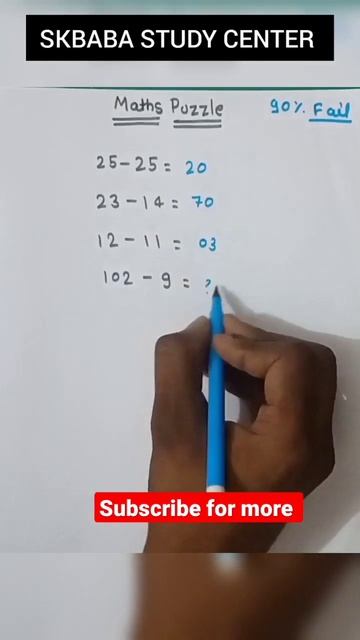 SKBABA STUDY CENTER
Maths Puzzle 90% Fail
25-25 = 20
23-14 = 70
12-11 = 03
102-9 = ?
Subscribe for more